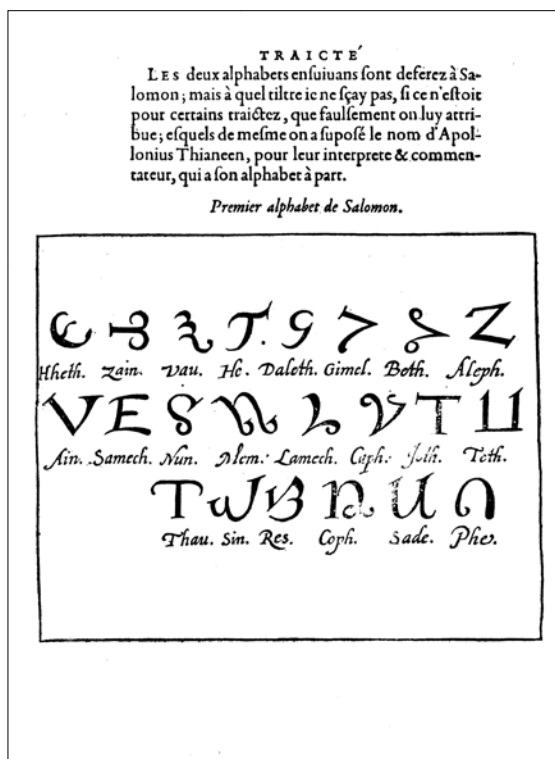 TRAICTÉ
LES deux alphabets ensuiuans sont deferez à Sa-
lomon; mais à quel tiltre ie ne sçay pas, si ce n'estoit
pour certains traictez, que faulsement on luy attri-
bue; esquels de mesme on a suposé le nom d'Apol-
lonius Thianeen, pour leur interprete & commen-
tateur, qui a son alphabet à part.
Premier alphabet de Salomon.
Hheth. Zain. Vau. He. Daleth. Gimel. Beth. Aleph.
Ain. Samech. Nun. Mem. Lamech. Caph. Joth. Teth.
Thau. Sin. Res. Coph. Sade. Phe.